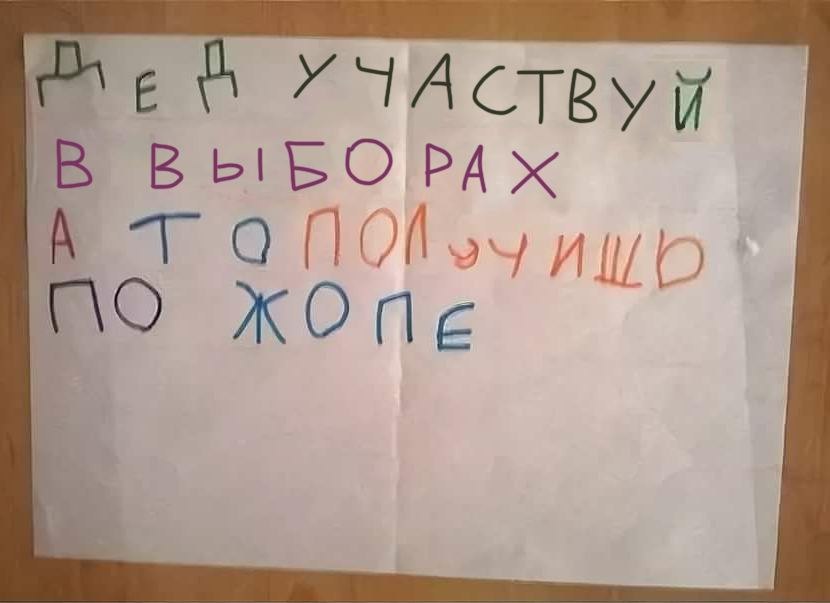 ДЕД УЧАСТВУЙ
В ВЫБОРАХ
А ТО ПОЛУЧИШЬ
ПО ЖОПЕ